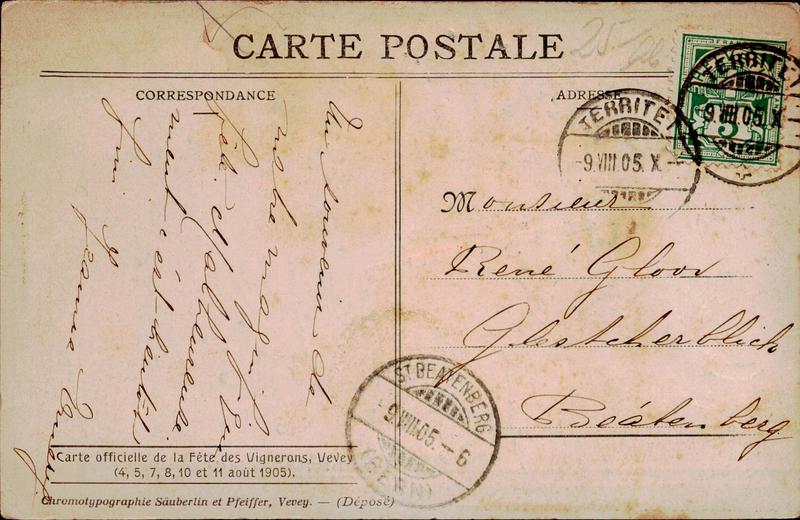 CARTE POSTALE
25
CORRESPONDANCE
ADRESSE
TERRITET
-9.VIII.05.X-
TERRITET
9.VIII.05.X
5
Un souvenir de
notre magnif
fête
ment c'est bientôt
fini
Jeanne
Monsieur
René Gloor
Gletscherblick
Beátenberg
ST BEATENBERG
-9.VIII.05.-6
(BERN)
Carte officielle de la Fête des Vignerons, Vevey
(4, 5, 7, 8, 10 et 11 août 1905).
Chromotypographie Säuberlin et Pfeiffer, Vevey. — (Déposé)